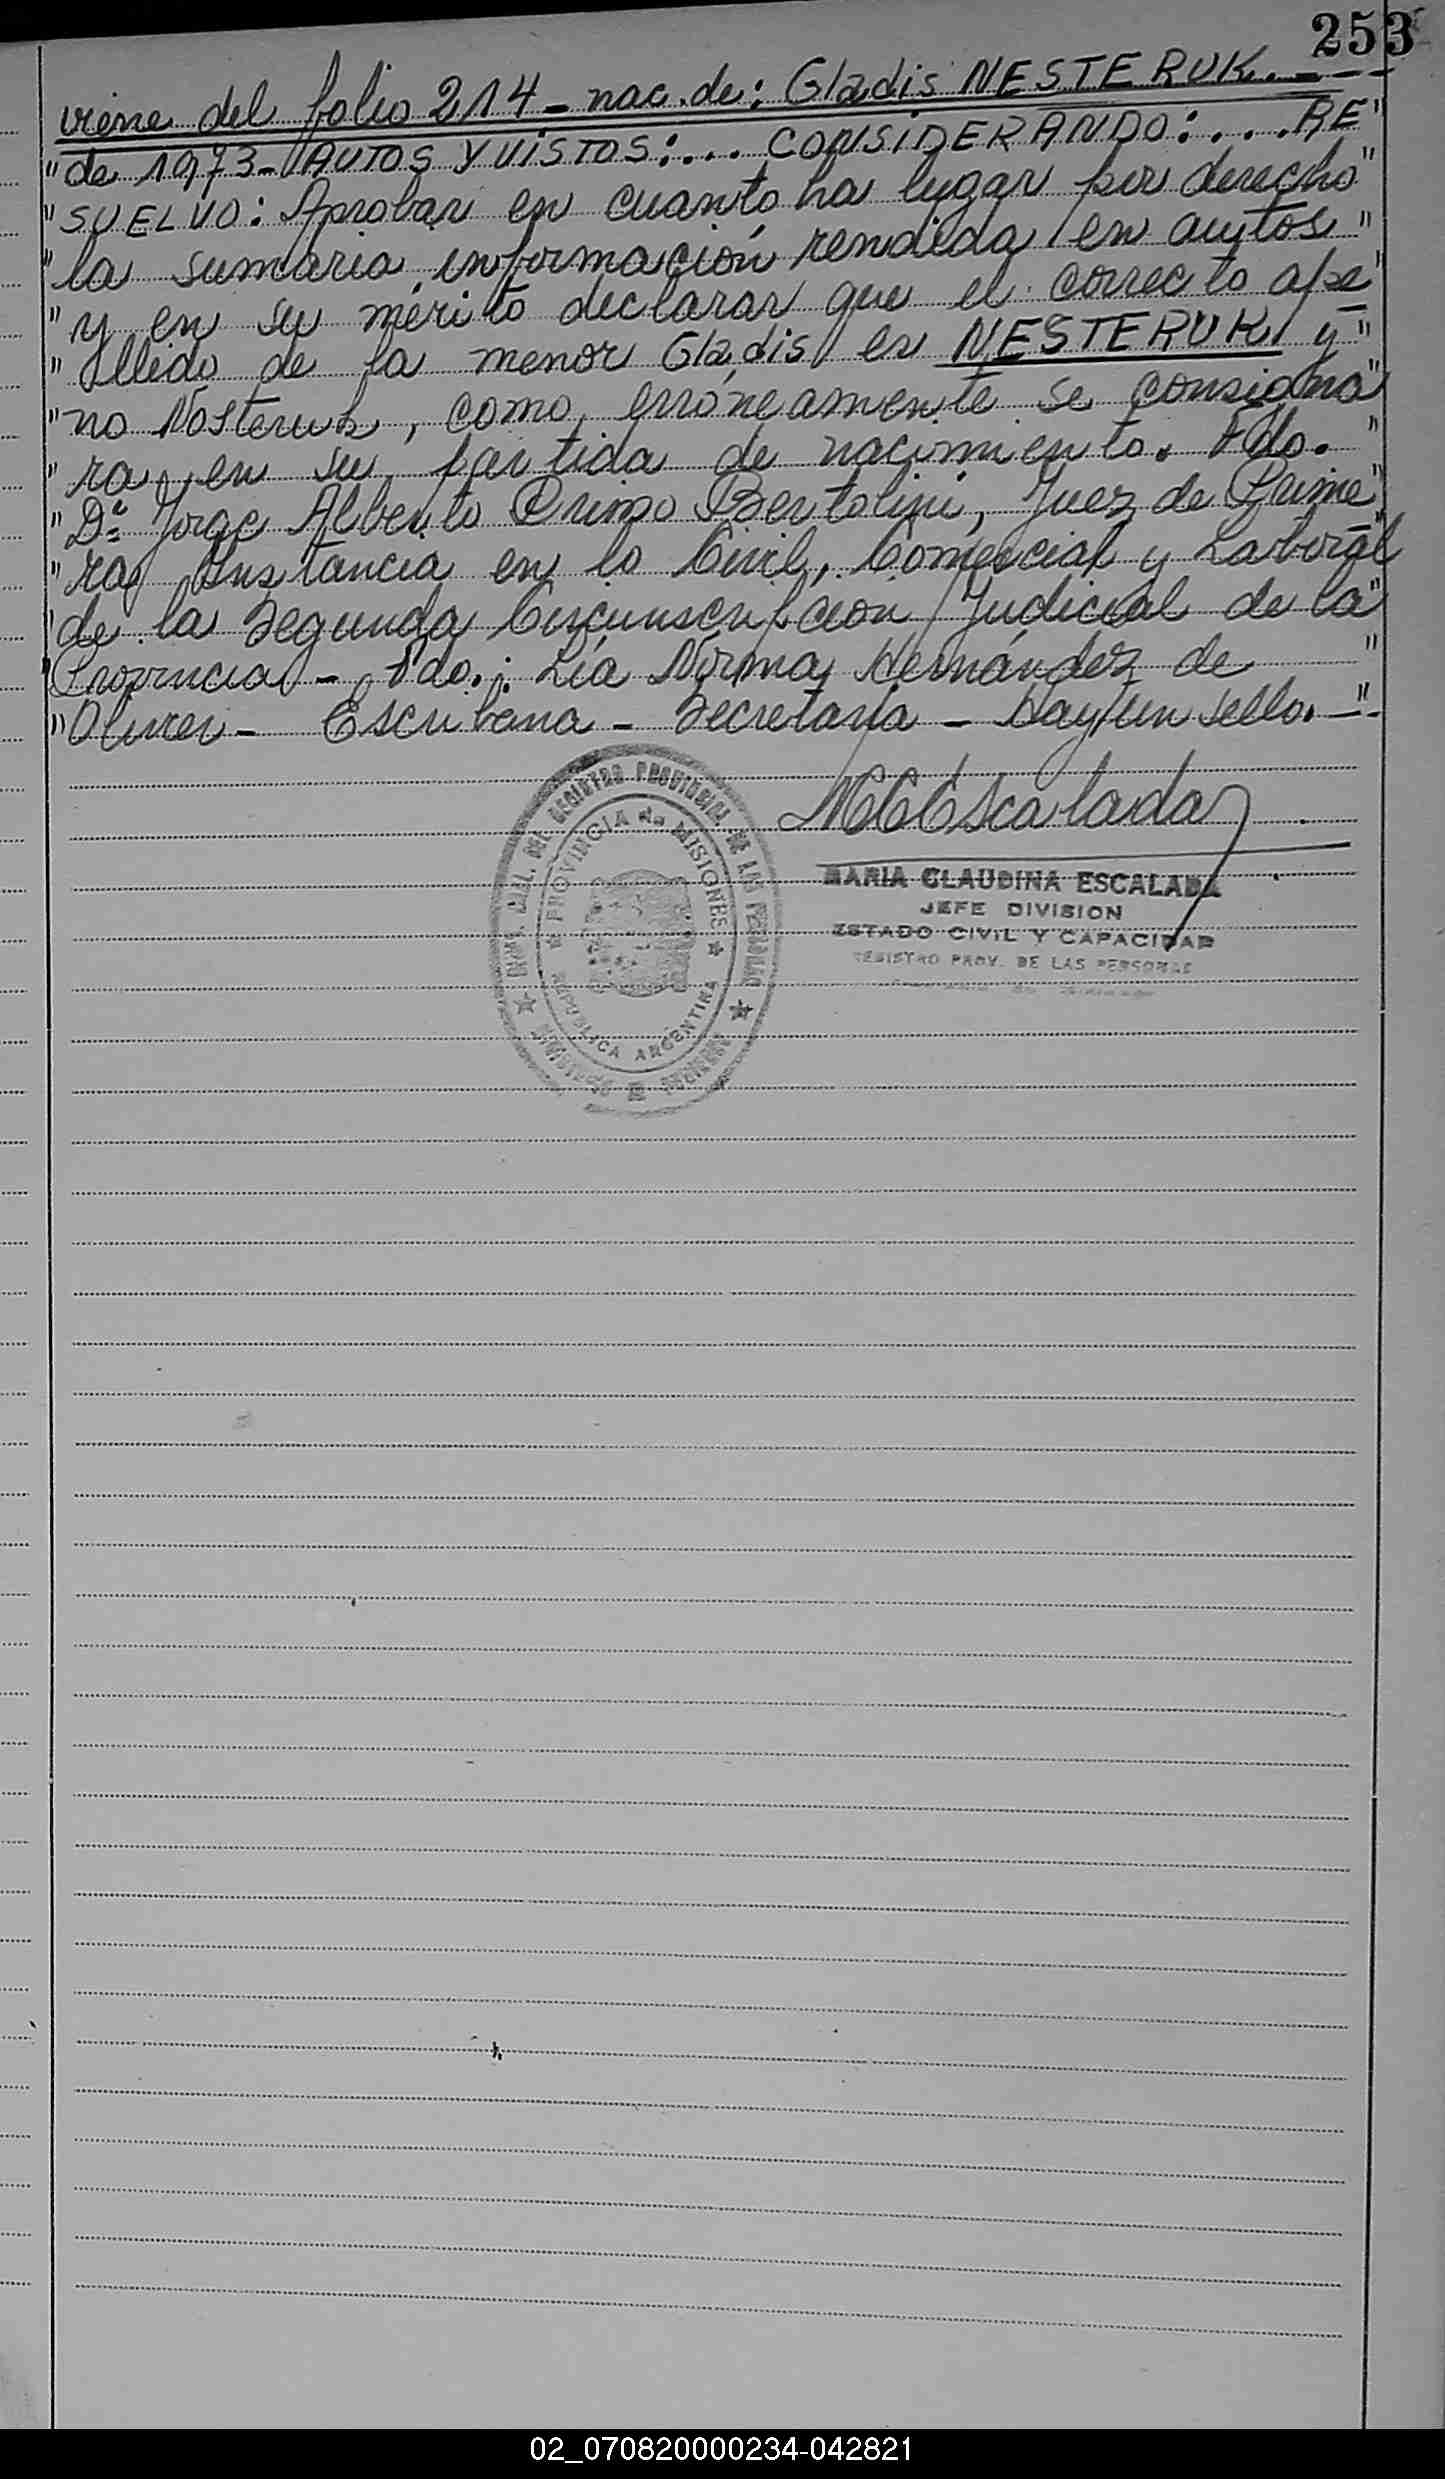 253
viene del folio 214 - nac. de: Gladis NESTERUK. - - - -
"de 1973 - AUTOS Y VISTOS:... CONSIDERANDO:.... RE"
"SUELVO: Aprobar en cuanto ha lugar por derecho"
"la sumaria información rendida en autos"
"y en su mérito declarar que el correcto ape"
"llido de la menor Gladis es NESTERUK y"
"no Nosteruk, como erróneamente se consigna"
"ra en su partida de nacimiento. Fdo."
"Dr. Jorge Alberto Primo Bertolini, Juez de Prime"
"ra Instancia en lo Civil, Comercial y Laboral
"de la Segunda Circunscripcion Judicial de la"
"Provincia - Fdo.: Lía Norma Hernández de "
"Oliver - Escribana - Secretaria - Hay un sello. - "-
MCEscalada
MARIA CLAUDINA ESCALADA
JEFE DIVISION
ESTADO CIVIL Y CAPACIDAD
REGISTRO PROV. DE LAS PERSONAS
GRAL. DEL REGISTRO PROVINCIAL DE LAS PERSONAS
PROVINCIA de MISIONES
REPUBLICA ARGENTINA
02_070820000234-042821